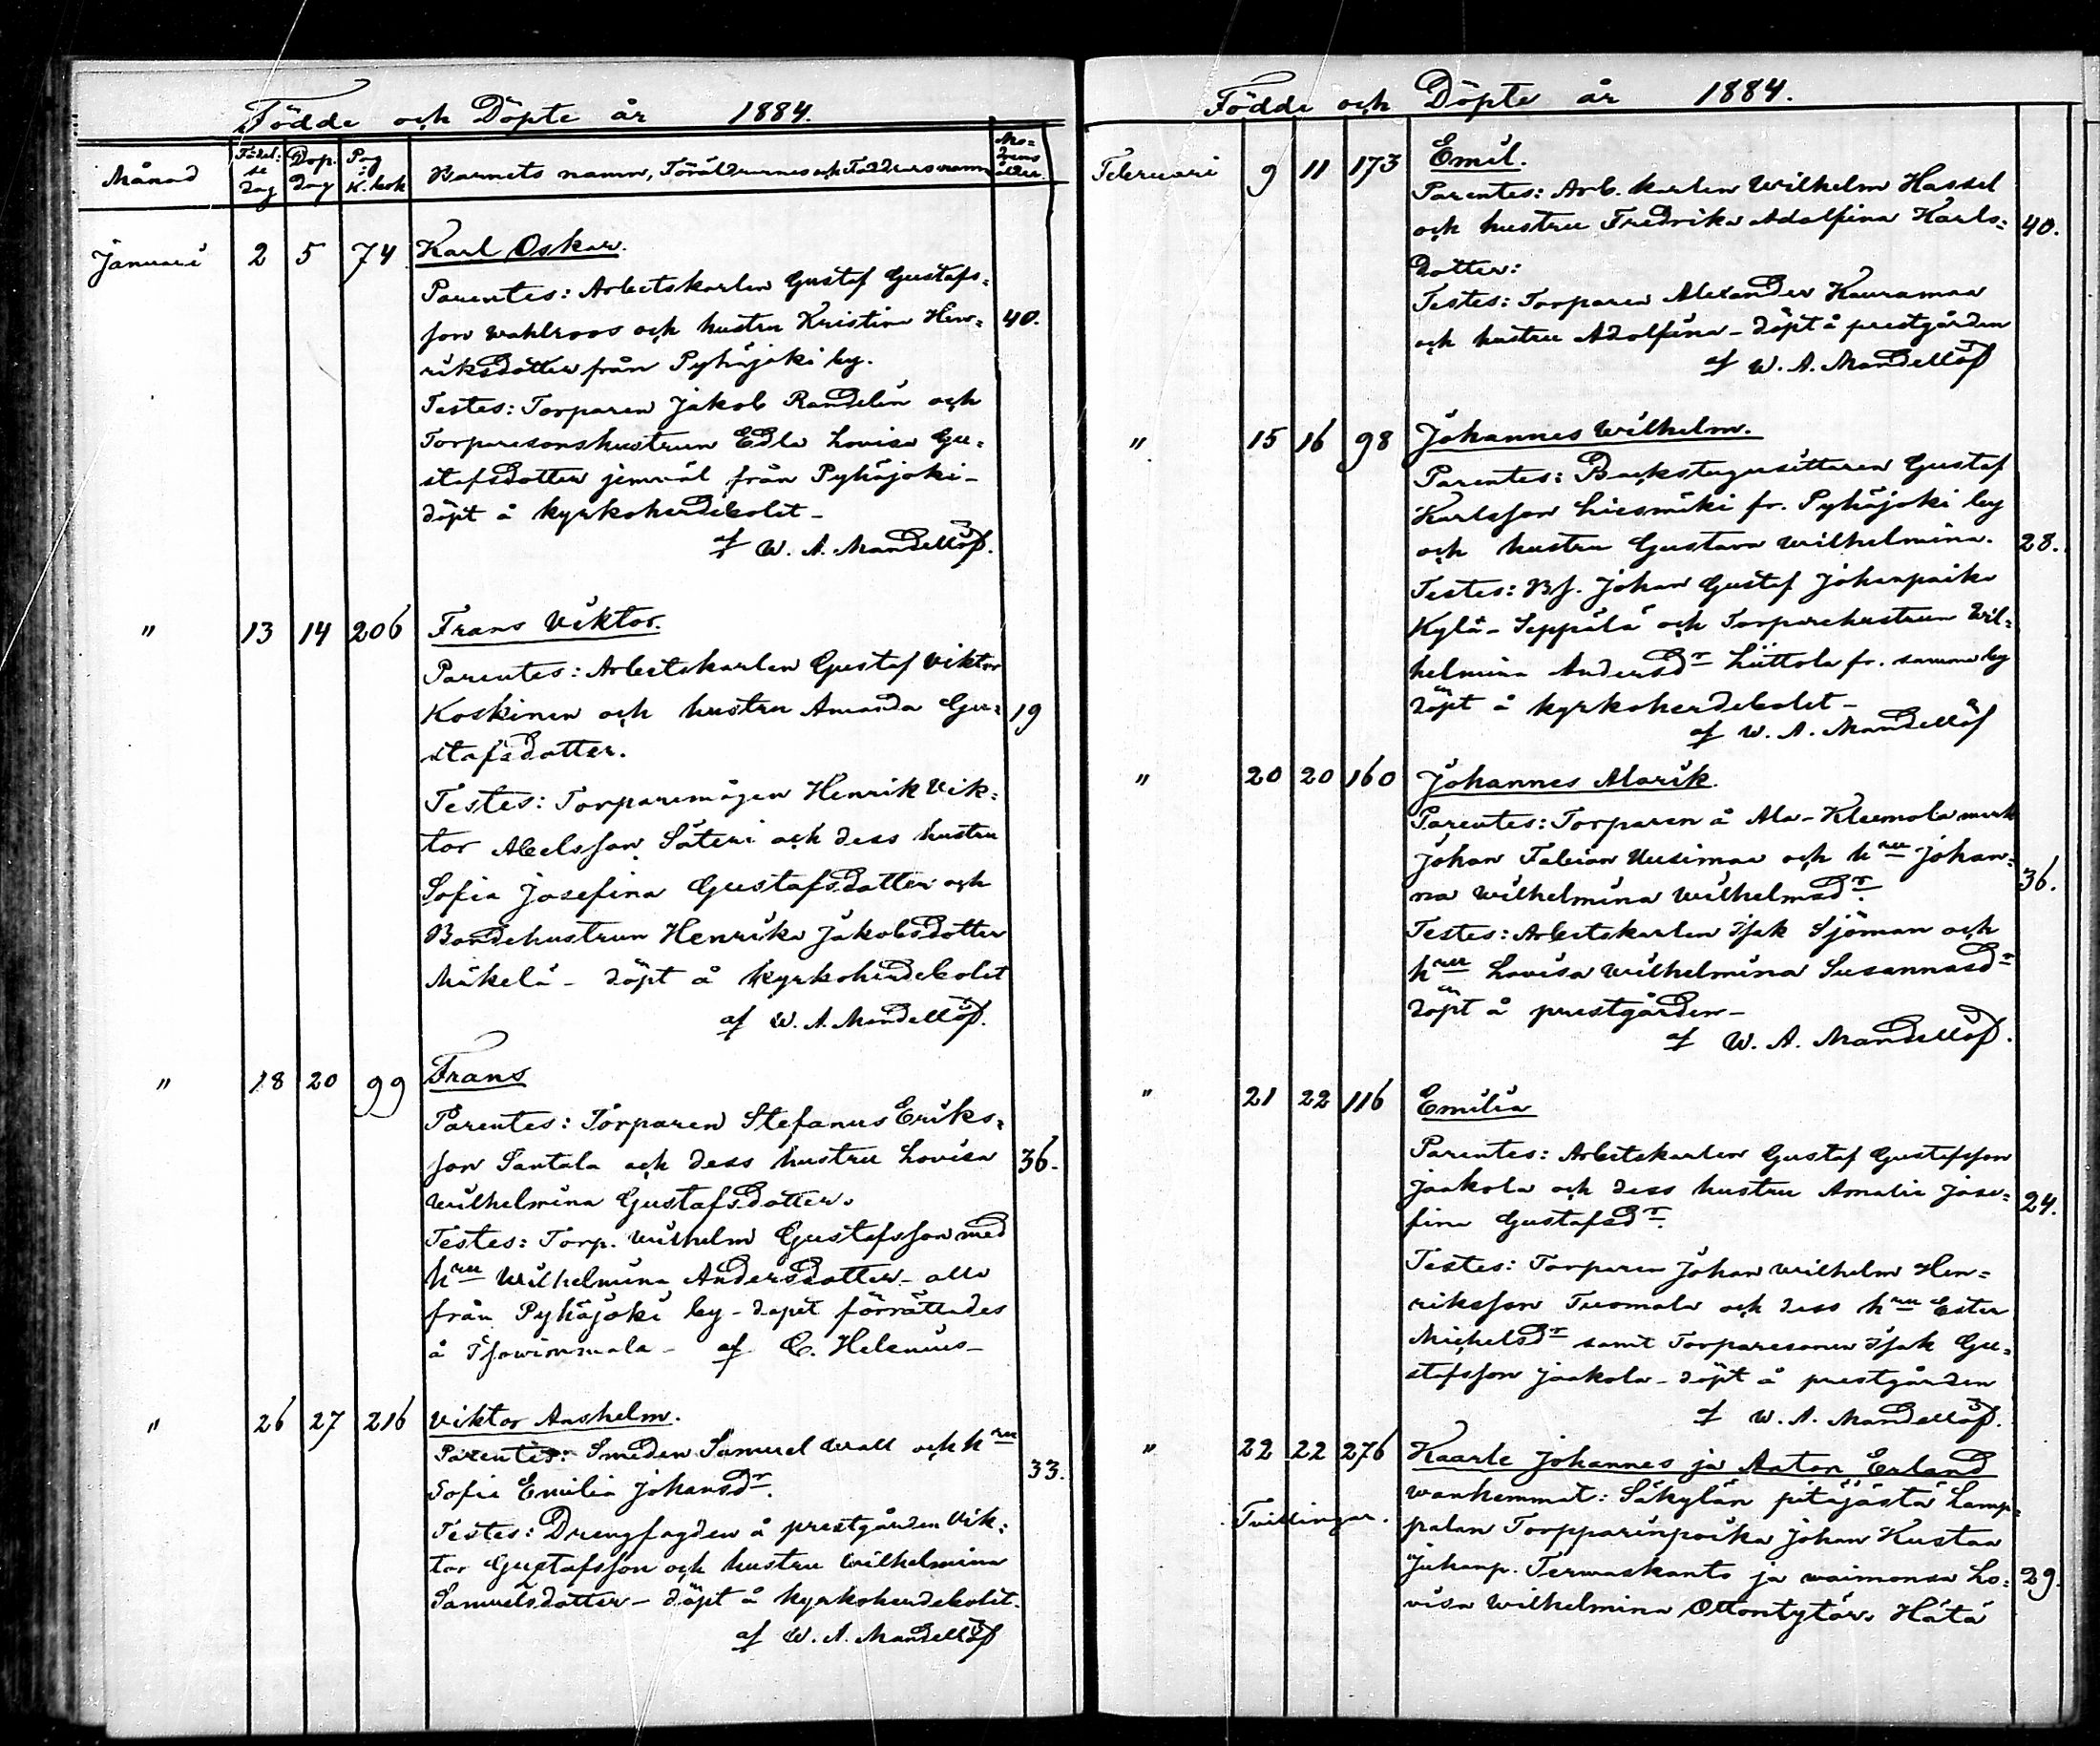 Födde och Döpte år 1884.
Månad Födel=se dag Dop. dag Pag i K. bok Barnets namn, Föräldrarnes och Faddrars namn Mo=drens ålder.
Januari 2 5 74 Karl Oskar.
Parentes: Arbetskarlen Gustaf Gustafs=
son Wahlroos och hustru Kristina Hen= 40.
riksdotter från Pyhäjoki by.
Testes: Torparen Jakob Randelin och
Torparesonshustrun Edla Lovisa Gu=
stafsdotter jemväl från Pyhäjoki-
döpt å kyrkoherdebolet-
af W. A. Mandellöf.
" 13 14 206 Frans Viktor.
Parentes: Arbetskarlen Gustaf Viktor
Koskinen och hustru Amanda Gu= 19
stafsdotter.
Testes: Torparemågen Henrik Vik=
tor Abelsson Säteri och dess hustru
Sofia Josefina Gustafsdotter och
Bondehustrun Henrika Jakobsdotter
Mäkelä - döpt å kyrkoherdebolet
af W. A. Mandellöf.
" 18 20 99 Frans
Parentes: Torparen Stefanus Eriks=
son Santala och dess hustru Lovisa 36.
Wilhelmina Gustafsdotter.
Testes: Torp. Wilhelm Gustafsson med
hru Wilhelmina Andersdotter - alla
från Pyhäjoki by - dopet förrättades
å - af C. Helenius-
" 26 27 216 Viktor Anshelm.
Parentes: Smeden Samuel Wall och hru
Sofia Emilia Johansdr. 33.
Testes: Drengfogden å prestgården Vik=
tor Gustafsson och hustru Wilhelmina
Samuelsdotter - döpt å kyrkoherdebolet.
af W. A. Mandellöf
Födde och Döpte år 1884.
Februari 9 11 173 Emil.
Parentes: Arb. karlen Wilhelm Hassel
och hustru Fredrika Adolfina Karls= 40.
dotter:
Testes: Torparen Alexander Kauramaa
och hustru Adolfina - döpt å prestgården
af W. A. Mandellöf
" 15 16 98 Johannes Wilhelm.
Parentes: Backstugusittaren Gustaf
Karlsson Liesmäki fr. Pyhäjoki by
och hustru Gustava Wilhelmina. 28.
Testes: Bf. Johan Gustaf Johanpoika
Kylä-Seppälä och Torparehustrun Wil=
helmina Andersdr Liittola fr. samma by
döpt å kyrkoherdebolet-
af W. A. Mandellöf
" 20 20 160 Johannes Alarik.
Parentes: Torparen å Ala-Kleemola mark
Johan Fabian Uusimaa och hru Johan= 36.
na Wilhelmina Wilhelmsdr.
Testes: Arbetskarlen Isak Sjöman och
hru Lovisa Wilhelmina Susannasdr
döpt å prestgården-
af W. A. Mandellöf.
" 21 22 116 Emilia
Parentes: Arbetskarlen Gustaf Gustafsson
Jaakola och dess hustru Amalia Jose= 24.
fina Gustafsdr.
Testes: Torparen Johan Wilhelm Hen=
riksson Tuomola och dess hru Ester
Michelsdr samt Torparesonen Isak Gu=
stafsson Jaakola - döpt å prestgården
af W. A. Mandellöf.
" 22 22 276 Kaarle Johannes ja Anton Erland
Tvillingar. wanhemmat: Säkylän pitäjästä Lamp=
palan Torpparinpoika Johan Kustaa
Juhanp. Terwaskanto ja waimonsa Lo= 29.
visa Wilhelmina Ottontytär. Hätä